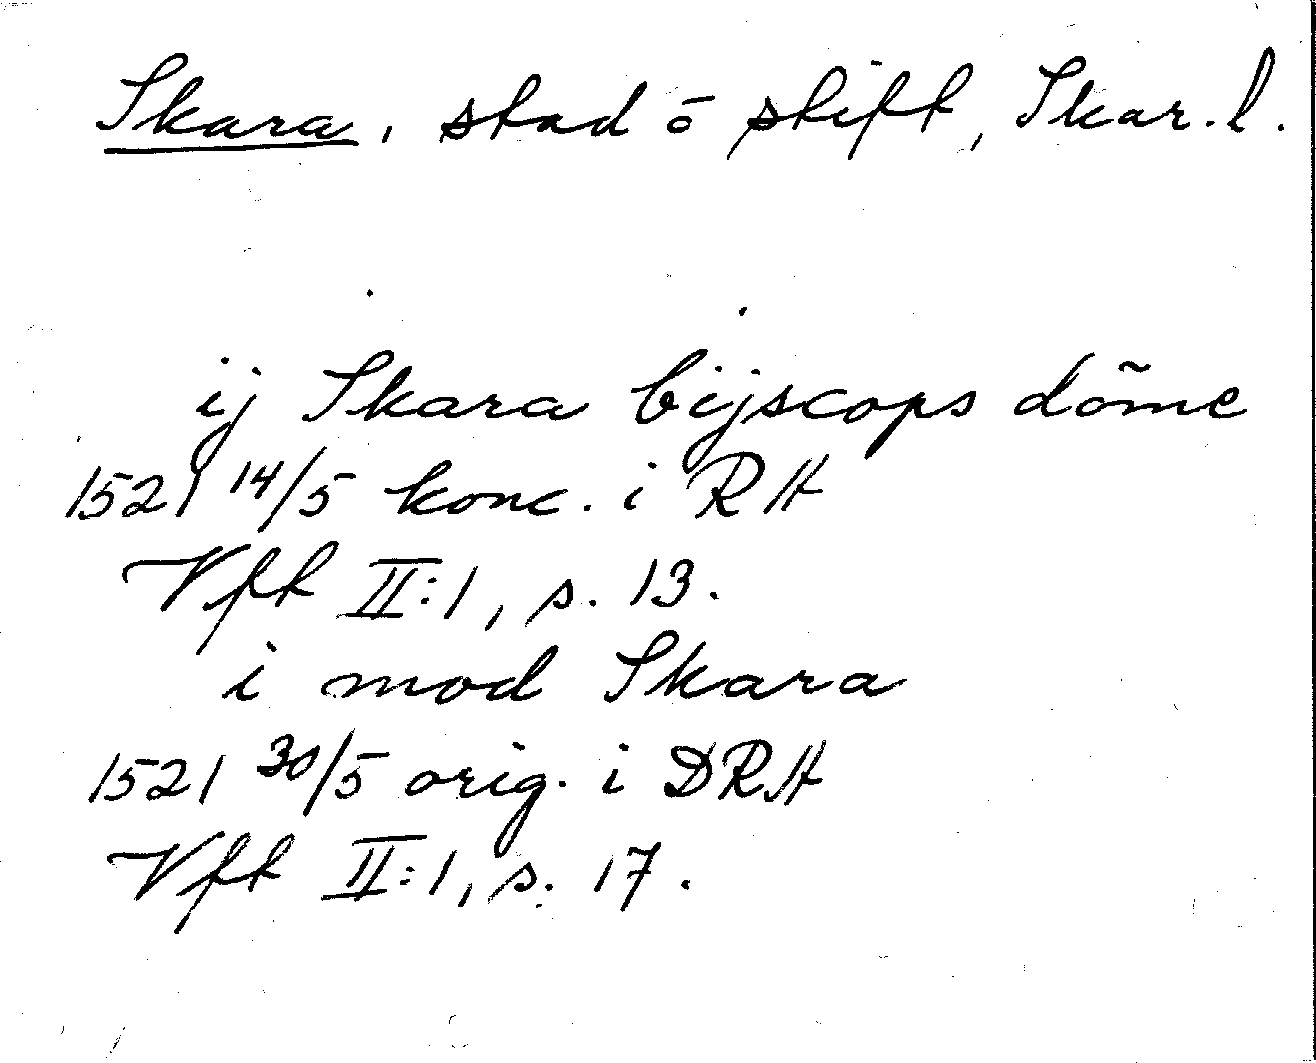 Skara, stad ō stift, Skar. l.
ij Skara bijscops dõme
1521 14/5 konc. i RA
Vft II:1, s. 13.
i mod Skara
1521 30/5 orig. i DRA
Vft II:1, s. 17.